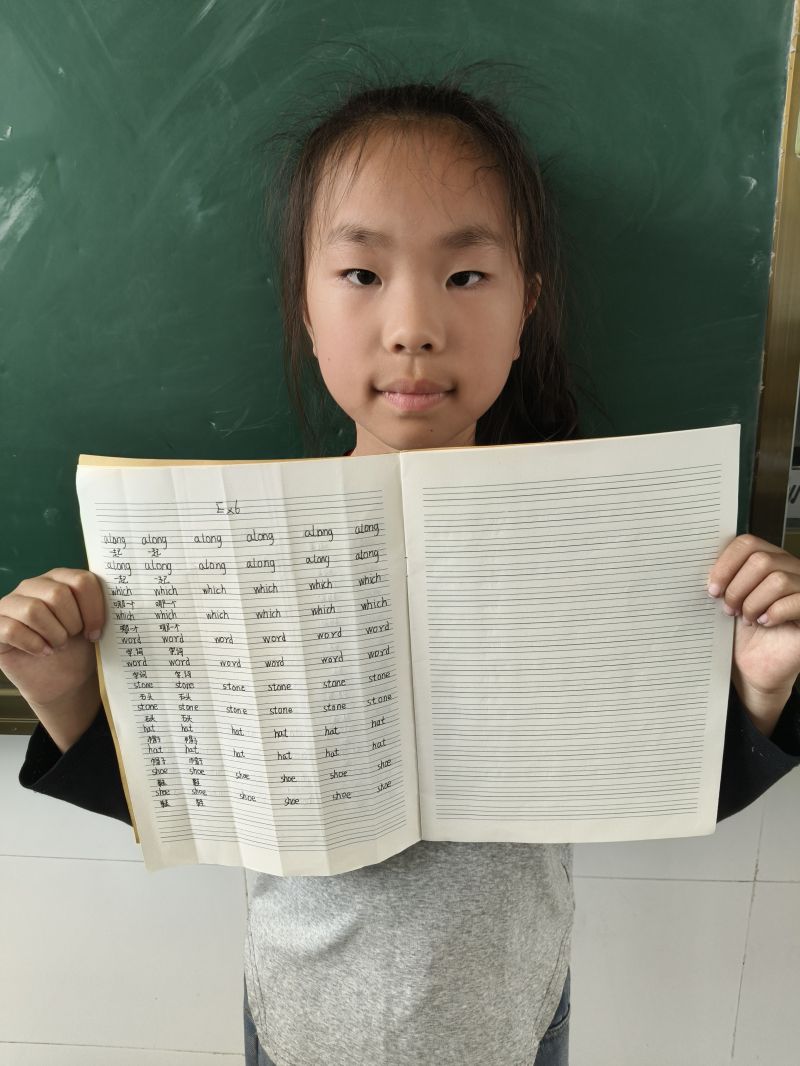 Ex6
along along along along along along
一起 一起
along along along along along along
一起 一起
which which which which which which
哪一个 哪一个
which which which which which which
哪一个 哪一个
word word word word word word
字词 字词
word word word word word word
字词 字词
stone stone stone stone stone stone
石头 石头
stone stone stone stone stone stone
石头 石头
hat hat hat hat hat hat
帽子 帽子
hat hat hat hat hat hat
帽子 帽子
shoe shoe shoe shoe shoe shoe
鞋 鞋
shoe shoe shoe shoe shoe shoe
鞋 鞋